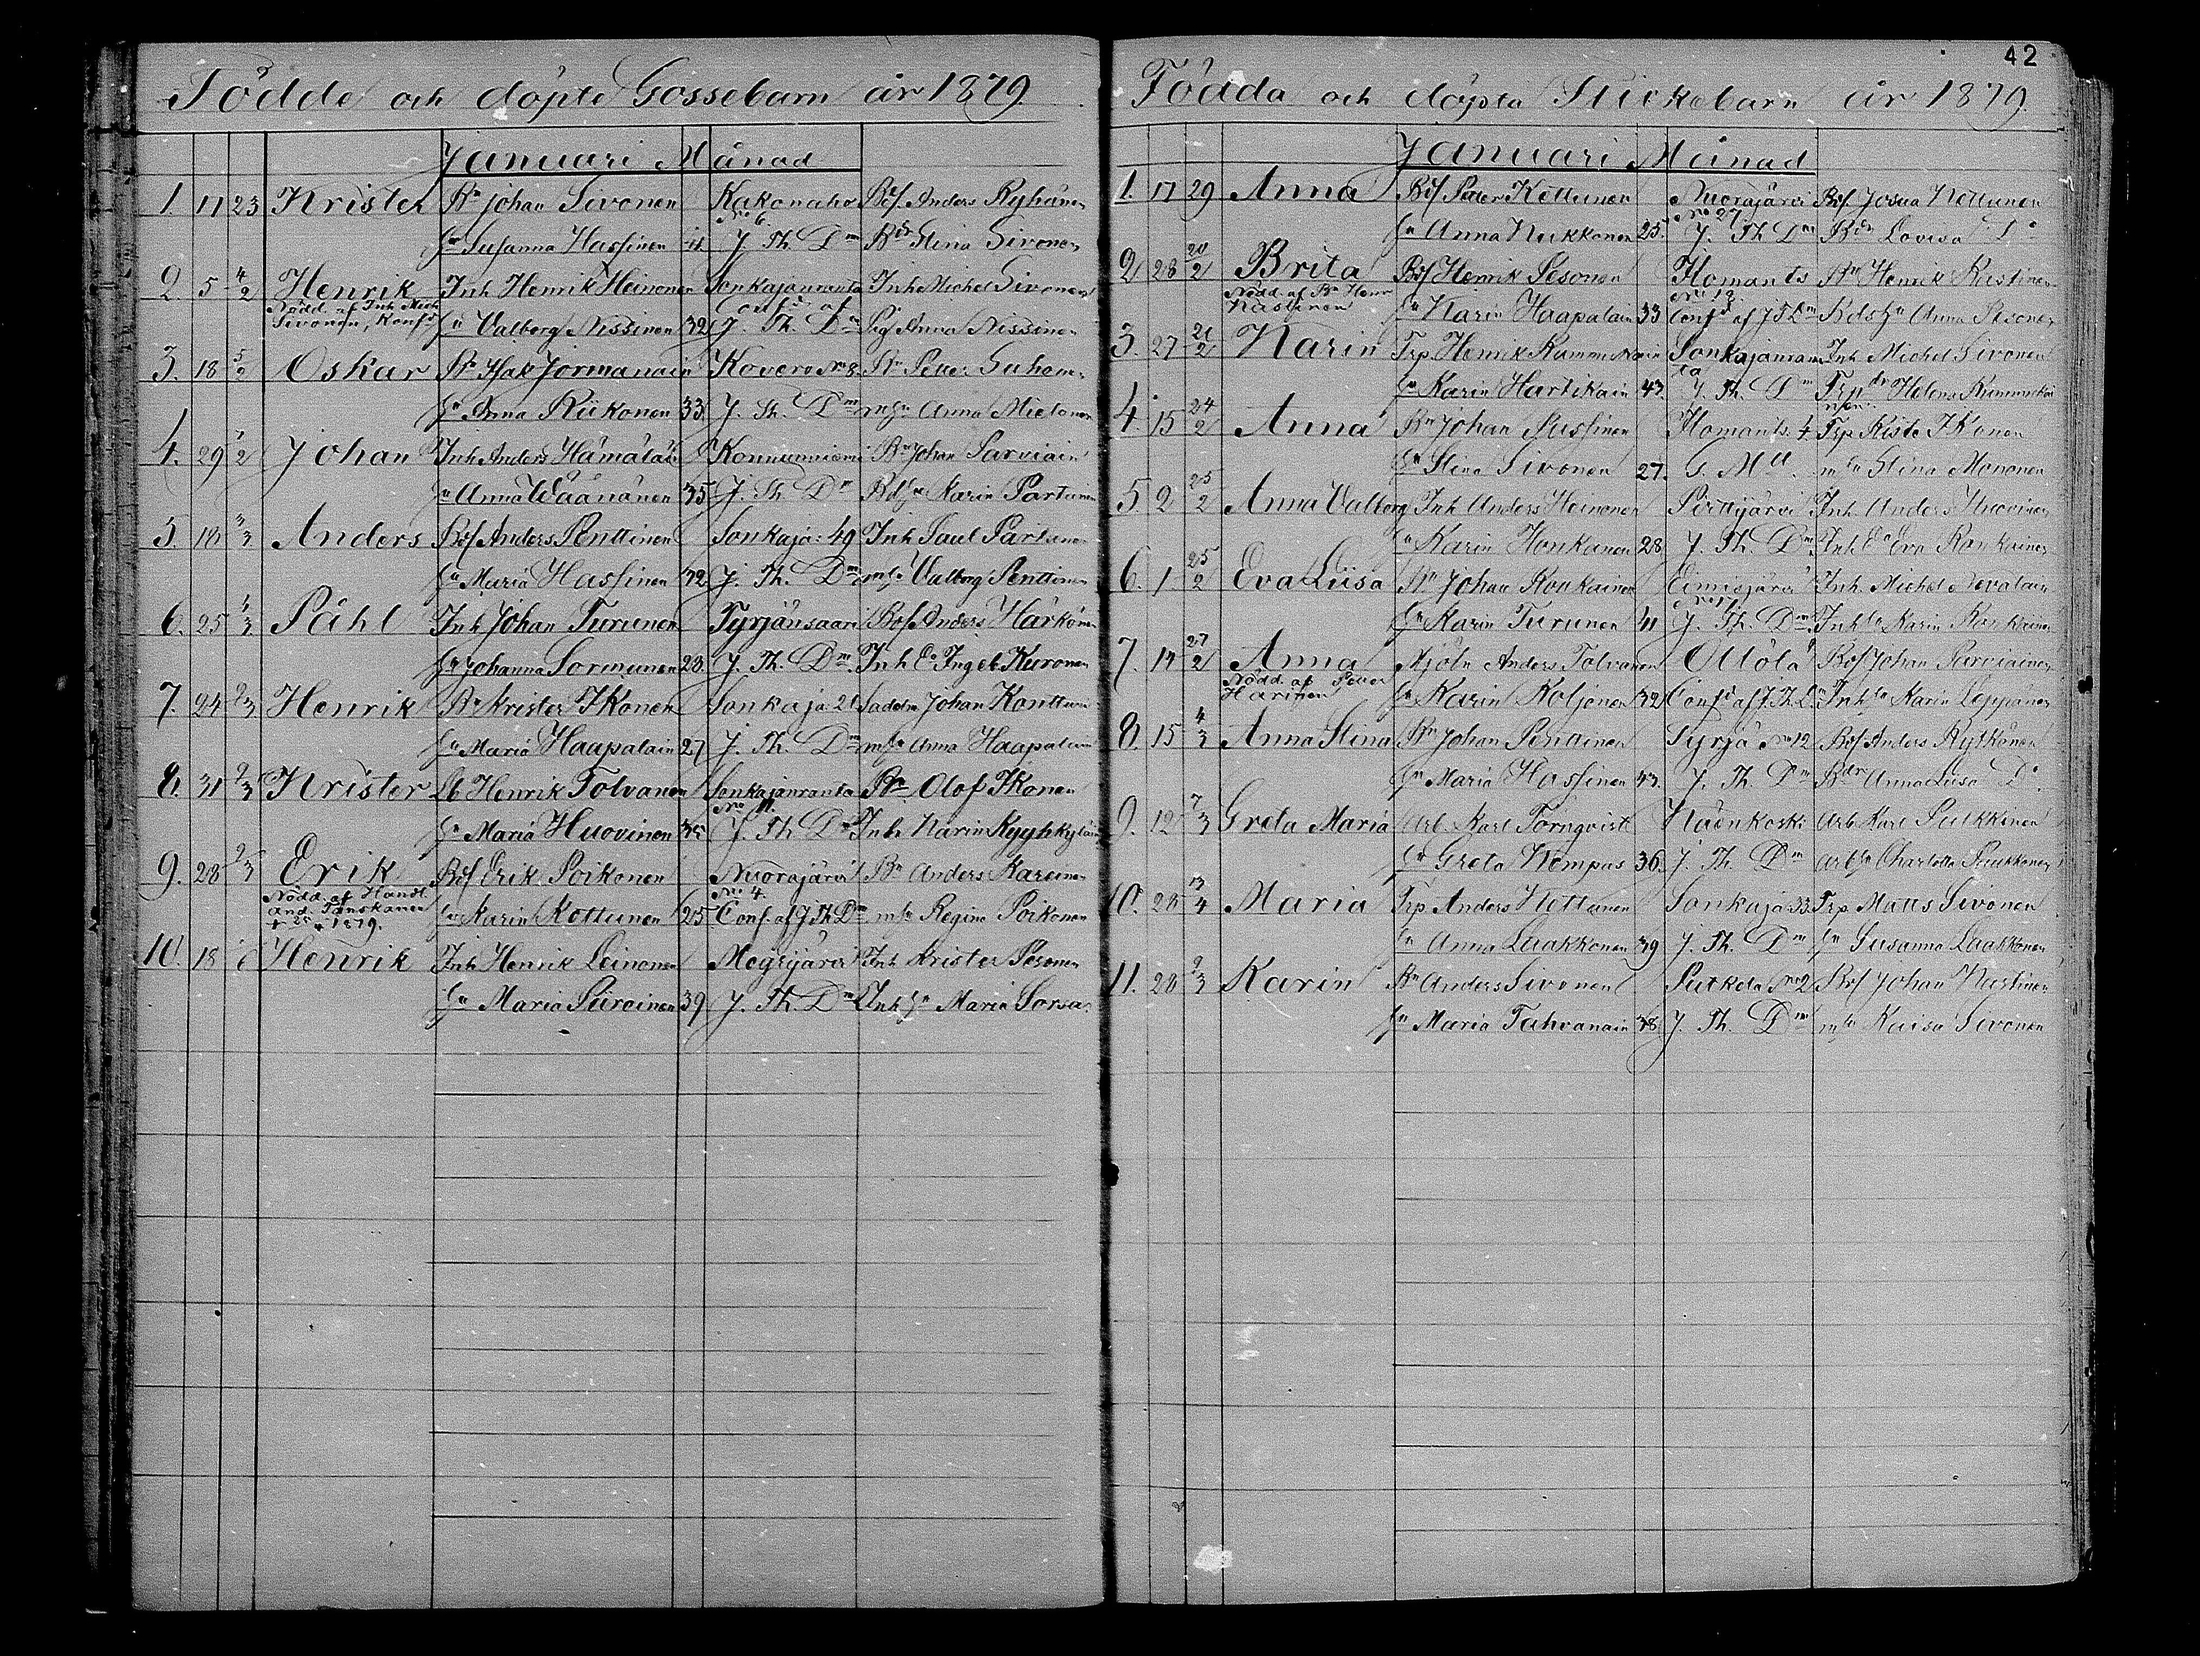 Födde och döpte Gossebarn år 1879.
Januari Månad
1. 11 23 Krister Bn Johan Sivonen Kakonaho Bof Anders Ryhänen
No 6
hu Susanna Hassinen J. Th. Dm Bdr Stina Sivonen
2. 5 4/2 Henrik Inh Henrik Heinonen Sonkajanranta Inh Michel Sivonen
Nödd. af Inh Mich Sivonen, Konfd af
hu Valborg Nissinen 32 J. Th. Dm Pig Anna Nissinen
3. 18 5/2 Oskar Bn Isak Jormanain Kovero No 8. Bn Petter Suhonen
hu Anna Riikonen 33 J. Th. Dm mhu Anna Mielonen
4. 29 7/2 Johan Inh Anders Hämäläin Konnunniemi Bn Johan Parviain
hu Anna Wäänänen 35 J. Th. Dm Karin Partanen
5. 18 3/3 Anders Bof Anders Penttinen Sonkaja: 49 Inh Paul Partanen
hu Maria Hassinen 32 J. Th. Dm mhu Valborg Penttinen
6. 25 Påhl Inh Johan Turunen Tyrjänsaari Bof Anders Härkönen
hu Johanna Sormunen 23. J. Th. Dm Inh Do Ingeb. Kuronen
7. 24 2/3 Henrik Bn Krister Ikonen Sonkaja 21 Johan Konttinen
hu Maria Haapalain 27 J. Th. Dm mhu Anna Haapalain
8. 31 2/3 Krister Lb Henrik Tolvanen Sonkajanranta Bn Olof Ikonen
No 11.
hu Maria Huovinen 35 J. Th. Dm Inh Karin Kyyhkyläin
9. 28 2/3 Erik Bof Erik Poikonen Nuorajärvi Bn Anders Kareinen
Nödd. af Handl And. Tanskanen 1879. No 4.
hu Karin Kottunen 25 Conf. af J. Th Dm mhu Regina Poikonen
10. 18 Henrik Inh Henrik Leinonen Megrijärvi Inh Krister Pesonen
hu Maria Piiroinen 39 J. Th. Dm Inh hu Maria Sorsa.
42
Födda och döpta Flickobarn år 1879.
Januari Månad
1. 17 29 Anna Bof Peter Kettunen Nuorajärvi Bof Josua Kettunen
No 27
hu Anna Kukkonen 25 J. Th Dm Bdr Lovisa Do
2. 28 20/2 Brita Bof Henrik Pesonen Ilomants Bn Henrik Kastinen
Nödd. af Bn Henr Kastinen No 12.
hu Karin Haapalain 33 Confd af J Th Dm Anna Pesonen
3. 27 21/2 Karin Trp. Henrik Rummukain Sonkajanranta Inh Michel Sivonen
hu Karin Hartikain 43. J. Th. Dm Trpdr Helena Rummukainen
4. 15 24/2 Anna Bn Johan Pussinen Ilomants. 4 Trp Riste Ikonen
hu Stina Sivonen 27. mhu Stina Mononen
5. 2 25/2 Anna Valborg Inh Anders Heinonen Pirttijärvi Inh Anders Huovinen
hu Karin Honkanen 28 J. Th. Dm Inh Do Eva Ronkainen
6. 1. 25/2 Eva Liisa Bn Johan Ronkainen Eimisjärvi Inh. Michel Nevalain
hu Karin Turunen 41 J. Th. Dm. Inhhu Karin Ronkainen
7. 14 27/2 Anna Mjöln Anders Tolvanen Ollola Bof Johan Parviainen
Nödd. af Peter Harinen
hu Karin Koljonen 32 Confd af J. Th. Dm Inhhu Karin Leppänen
8. 15 4/3 Anna Stina Bn Johan Pentinen Syrjä No 12 Bof Anders Rytkönen
hu Maria Hassinen 43. J. Th. Dm Bdr Anna Liisa Do
9. 12 7/3 Greta Maria Arb. Karl Törnqvist Käenkoski Arb Karl Pulkkinen
hu Greta Kempas 36. J. Th. Dm Arbhu Charlotta Puukkonen
10. 28 13/4 Maria Trp. Anders Hettanen Sonkaja 33. Trp Matts Sivonen
hu Anna Laakkonen 39 J. Th. Dm hu Susanna Laakkonen
11. 20 9/3 Karin Bn Anders Sivonen Putkela No 2 Bof Johan Kastinen
hu Maria Tahvanain 38. J. Th. Dm mhu Kaisa Sivonen